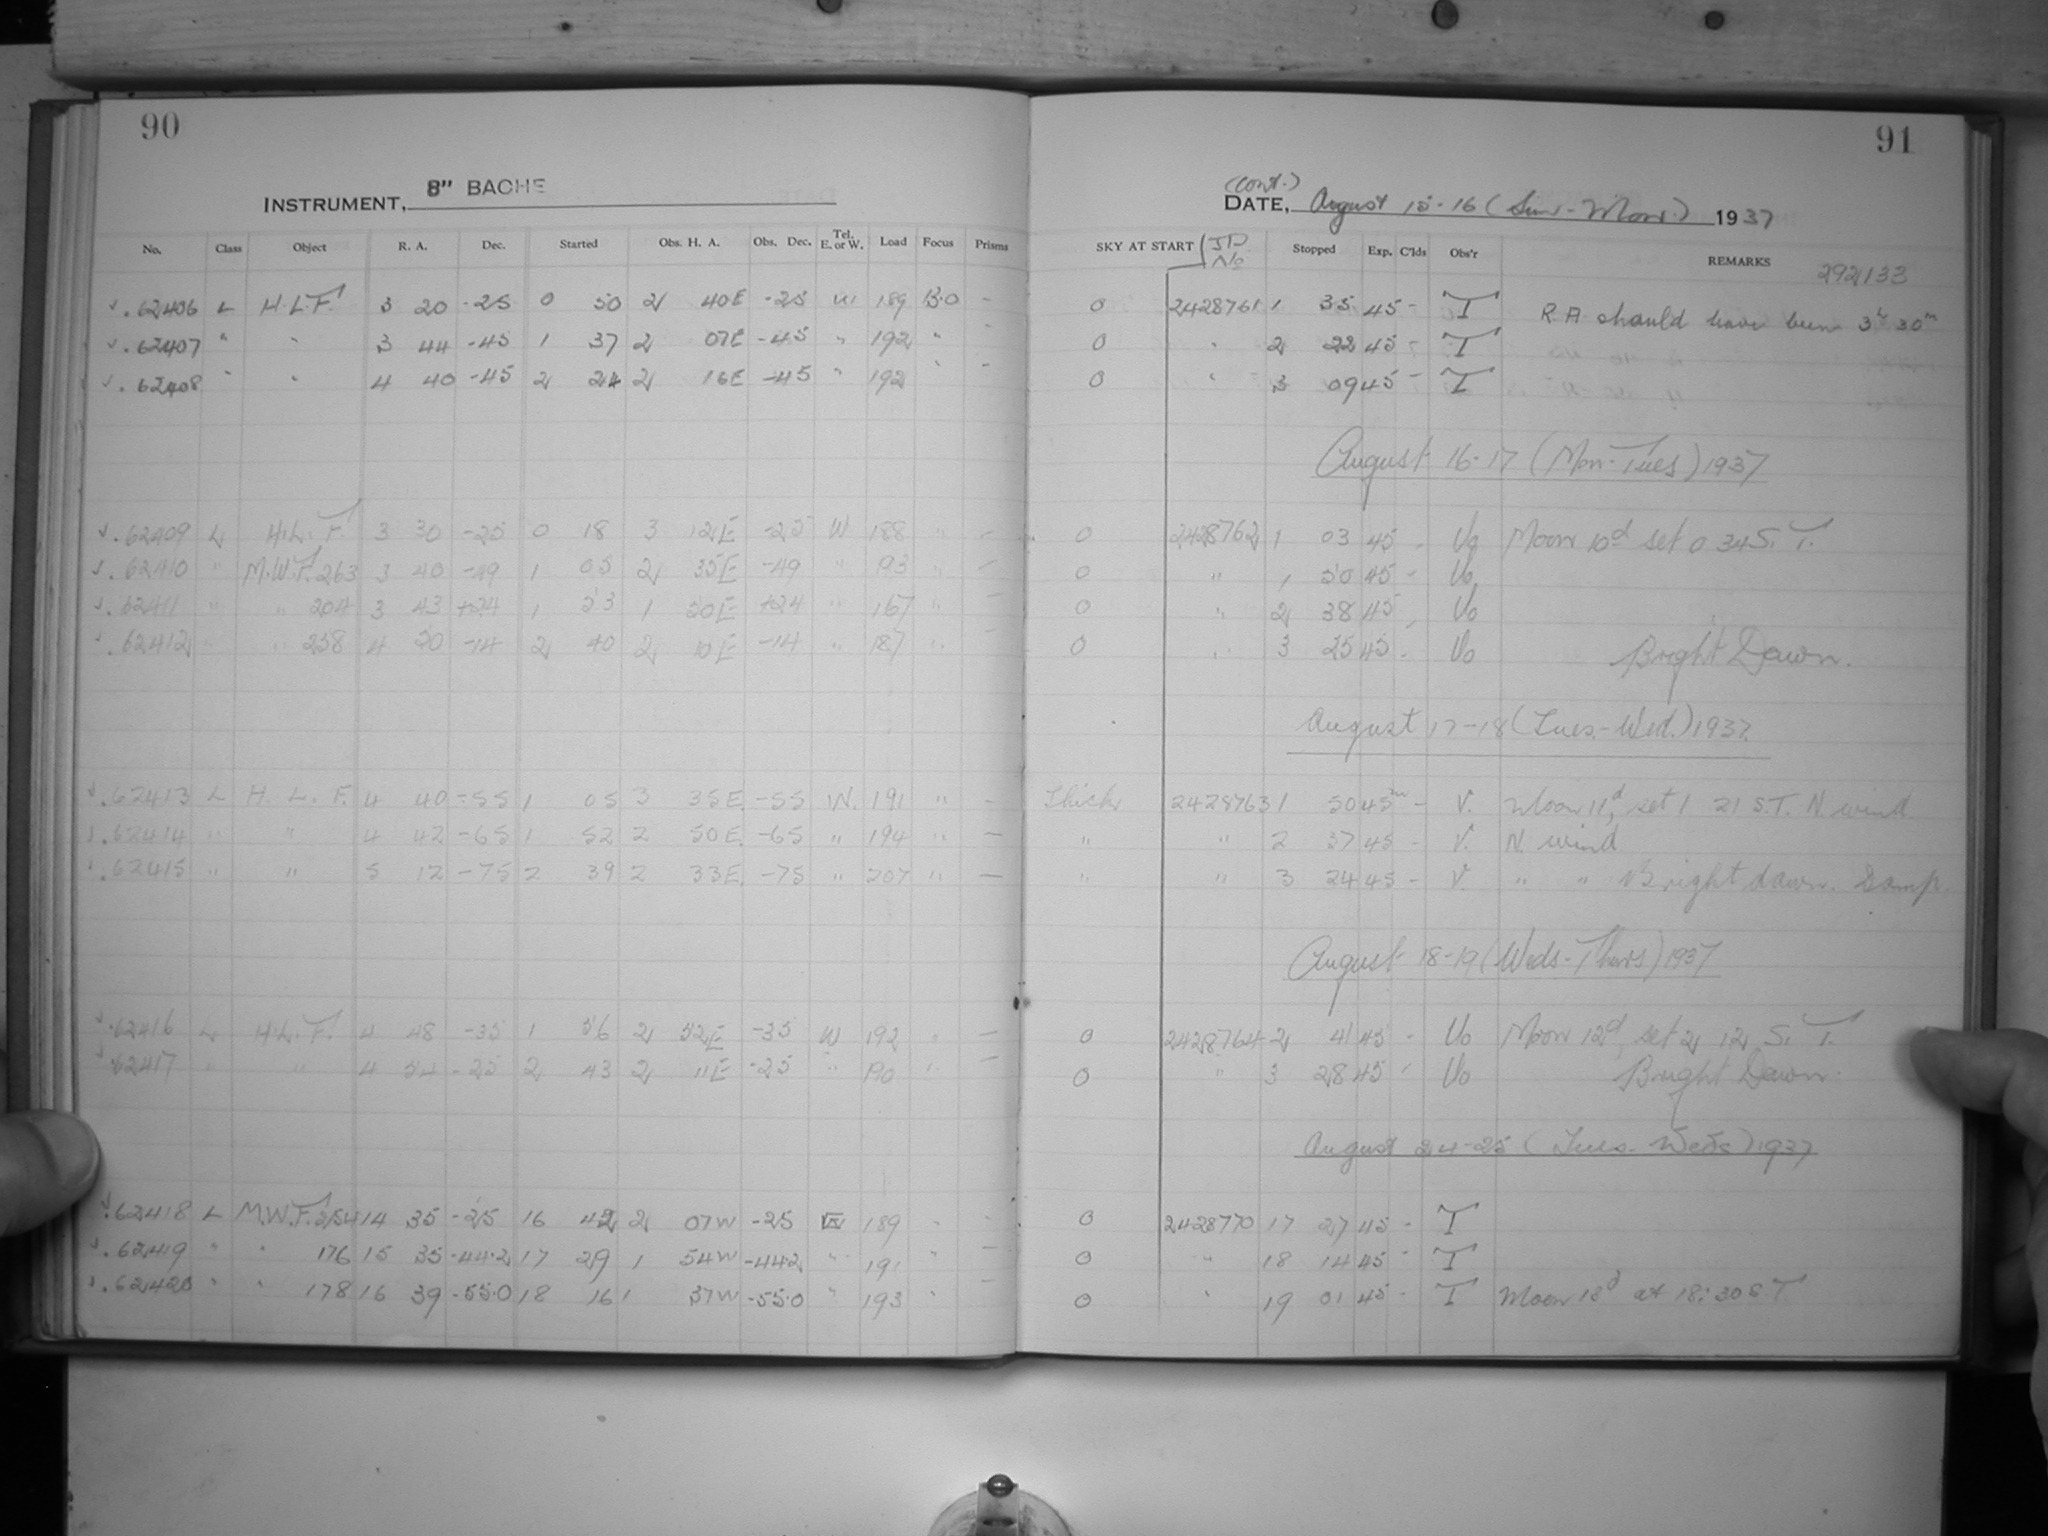 90
INSTRUMENT, 8" BACHE
No. Class Object R. A. Dec. Started Obs. H. A. Obs. Dec. Tel. E. or W. Load Focus Prisms
.62406 L H.L.F. 3 20 -25 0 50 2 40E -25 W 189 13.0 -
.62407 " " 3 44 -45 1 37 2 07E -45 " 192 " -
.62408 " " 4 40 -45 2 24 2 16E -45 " 192 " -
.62409 L H.L.F. 3 30 -25 0 18 3 12E -25 W 188 " -
.62410 " M.W.F. 263 3 40 -49 1 05 2 35E -49 " 193 " -
.62411 " " 204 3 43 +24 1 53 1 50E +24 " 167 " -
.62412 " " 258 4 50 -14 2 40 2 10E -14 " 187 " -
.62413 L H. L. F. 4 40 -55 1 05 3 35E -55 W. 191 " -
.62414 " " 4 42 -65 1 52 2 50E -65 " 194 " -
.62415 " " 5 12 -75 2 39 2 33E -75 " 207 " -
.62416 L H.L.F. 4 48 -35 1 56 2 52E -35 W 192 " -
.62417 " " 4 54 -25 2 43 2 11E -25 " 190 " -
.62418 L M.W.F. 254 14 35 -25 16 42 2 07W -25 189 " -
.62419 " " 176 15 35 -44.2 17 29 1 54W -44.2 " 191 " -
.62420 " " 178 16 39 -55.0 18 16 1 37W -55.0 " 193 " -
91
(cont.)
DATE, August 15-16 (Sun-Mon.) 1937
SKY AT START J.D. No Stopped Exp. C'lds Obs'r REMARKS 292133
0 2428761 1 35 45 - T R A should have been 3h 30m
0 " 2 22 45 - T
0 " 3 09 45 - T
August 16-17 (Mon-Tues) 1937
0 2428762 1 03 45 - Vo Moon 10d set 0 34 S. T.
0 " 1 50 45 - Vo
0 " 2 38 45 - Vo
0 " 3 25 45 - Vo Bright Dawn.
August 17-18 (Tues.-Wed.) 1937.
Thick 2428763 1 50 45m - V. Moon 11d, set 1 21 S.T. N. wind
" " 2 37 45 - V. N. wind
" " 3 24 45 - V. " " Bright dawn. Damp.
August 18-19 (Weds-Thurs) 1937
0 2428764 2 41 45 - Vo Moon 12d, set 2 12 S. T.
0 " 3 28 45 - Vo Bright Dawn.
August 24-25 (Tues-Weds) 1937
0 2428770 17 27 45 - T
0 " 18 14 45 - T
0 " 19 01 45 - T Moon 18d at 18:30 S T